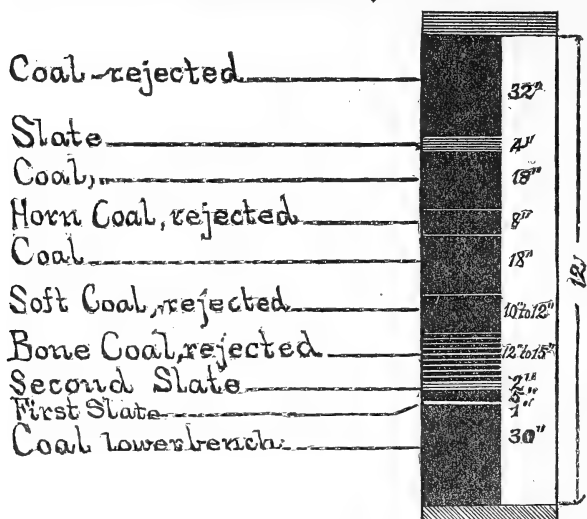 Coal rejected 32"
Slate 4"
Coal, 18"
Horn Coal, rejected 8"
Coal 18"
Soft Coal, rejected 10" to 12"
Bone Coal, rejected 12" to 15"
Second Slate 2"
5"
First Slate 1"
Coal lower bench 30"